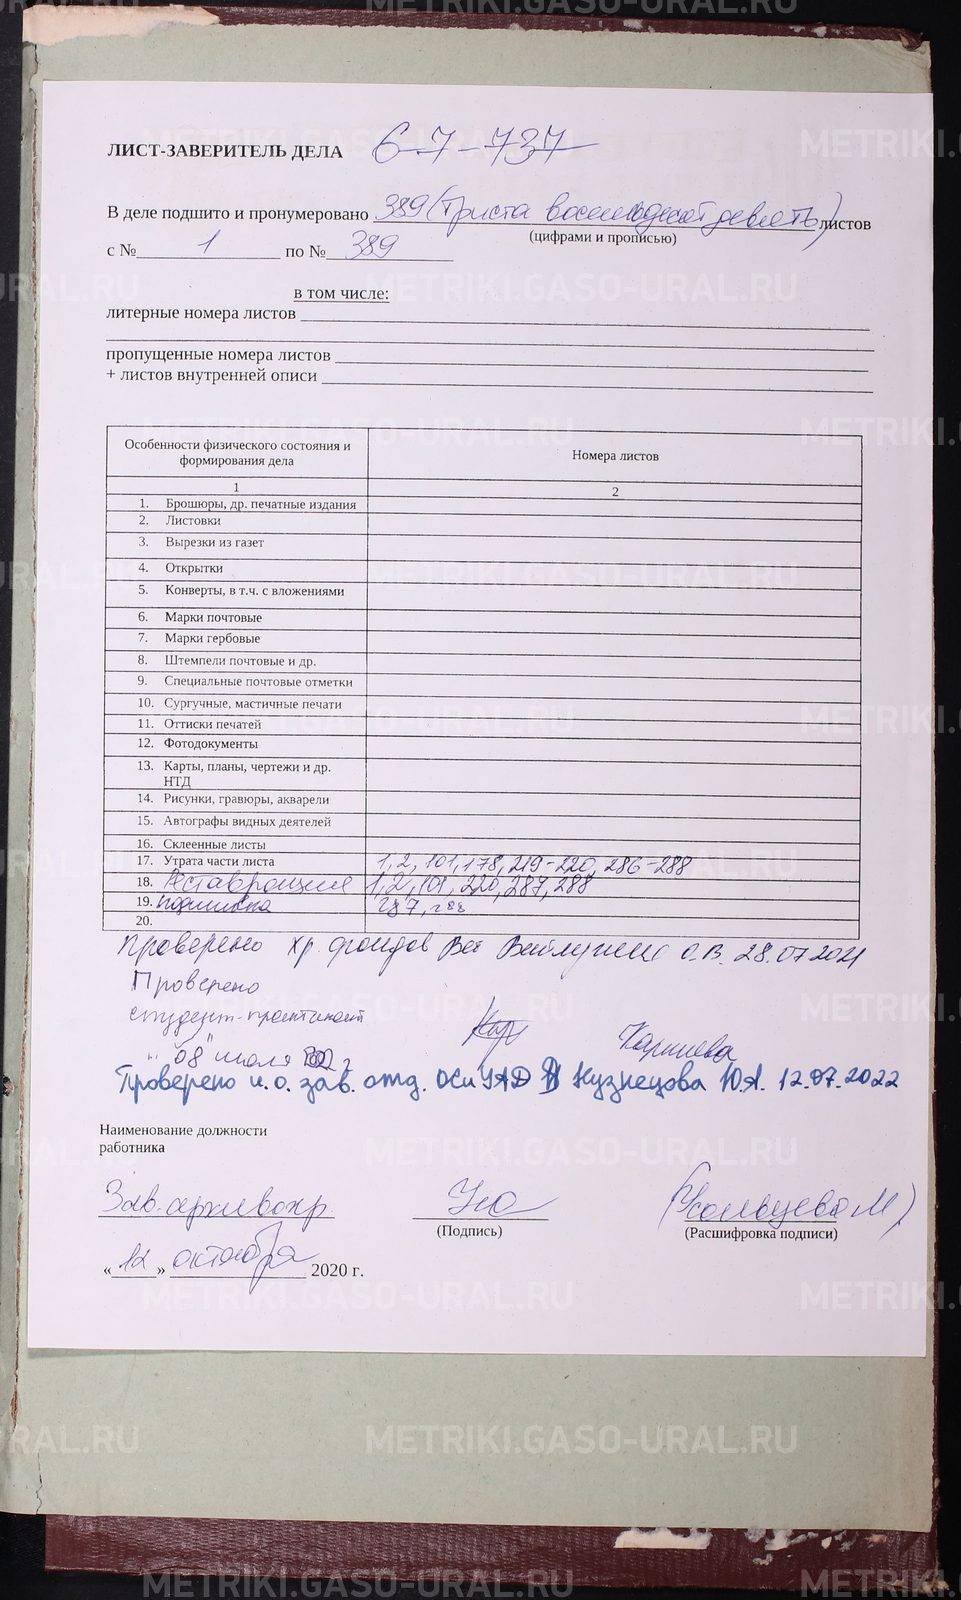 ЛИСТ-ЗАВЕРИТЕЛЬ ДЕЛА 6-7-737
В деле подшито и пронумеровано 389 (триста восемьдесят девять) листов
(цифрами и прописью)
с № 1 по № 389
в том числе:
литерные номера листов
пропущенные номера листов
+ листов внутренней описи
Особенности физического состояния и формирования дела
Номера листов
1
2
1. Брошюры, др. печатные издания
2. Листовки
3. Вырезки из газет
4. Открытки
5. Конверты, в т.ч. с вложениями
6. Марки почтовые
7. Марки гербовые
8. Штемпели почтовые и др.
9. Специальные почтовые отметки
10. Сургучные, мастичные печати
11. Оттиски печатей
12. Фотодокументы
13. Карты, планы, чертежи и др.
НТД
14. Рисунки, гравюры, акварели
15. Автографы видных деятелей
16. Склеенные листы
17. Утрата части листа 1, 2, 101, 178, 219-220, 286-288
18. Реставрация 1, 2, 101, 220, 287, 288
19. подшивка 287, 288
20.
Проверено хр. фондов О.В. 28.07.2021
Проверено
студент-практикант
"08" июля Каримова
Проверено и.о. зав. отд. ОСиУАД Кузнецова Ю.А. 12.07.2022
Наименование должности
работника
Зав. архивохр. (Усольцева М)
(Подпись) (Расшифровка подписи)
«12» октября 2020 г.
METRIKI.GASO-URAL.RU